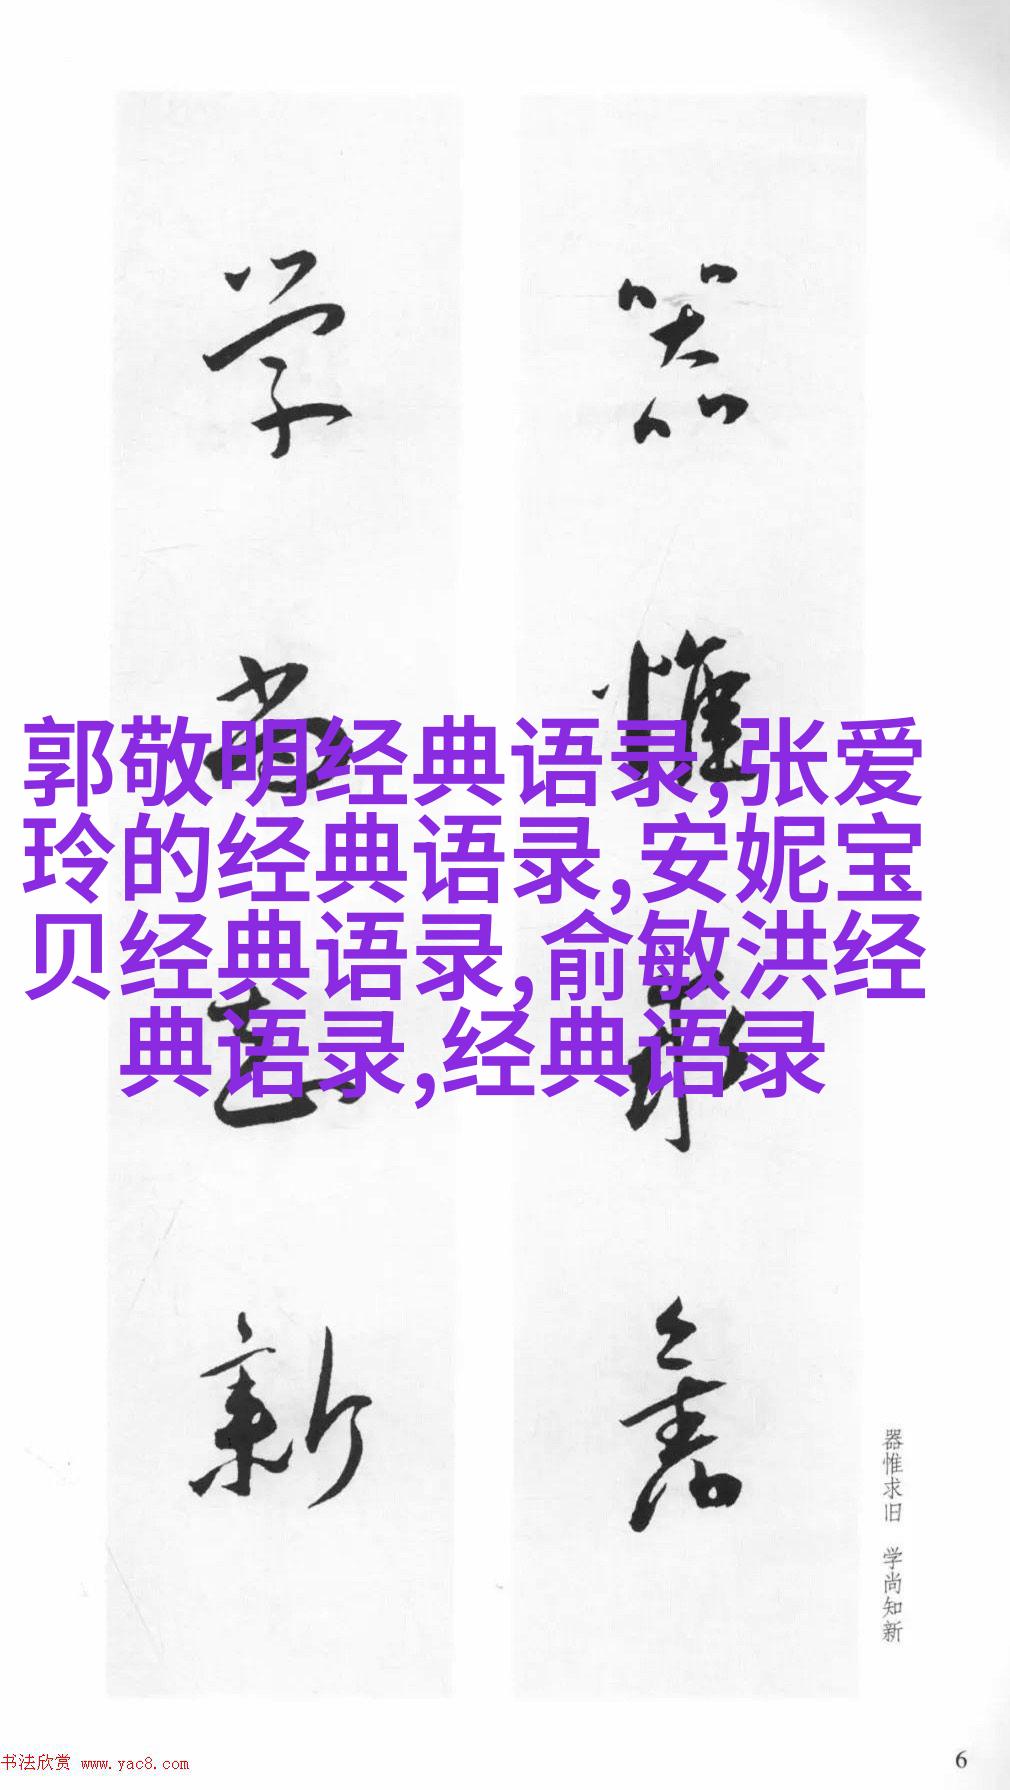 器惟求旧
学尚知新
郭敬明经典语录,张爱
玲的经典语录,安妮宝
贝经典语录,俞敏洪经
典语录,经典语录
器惟求旧 学尚知新
书法欣赏 www.yac8.com
6